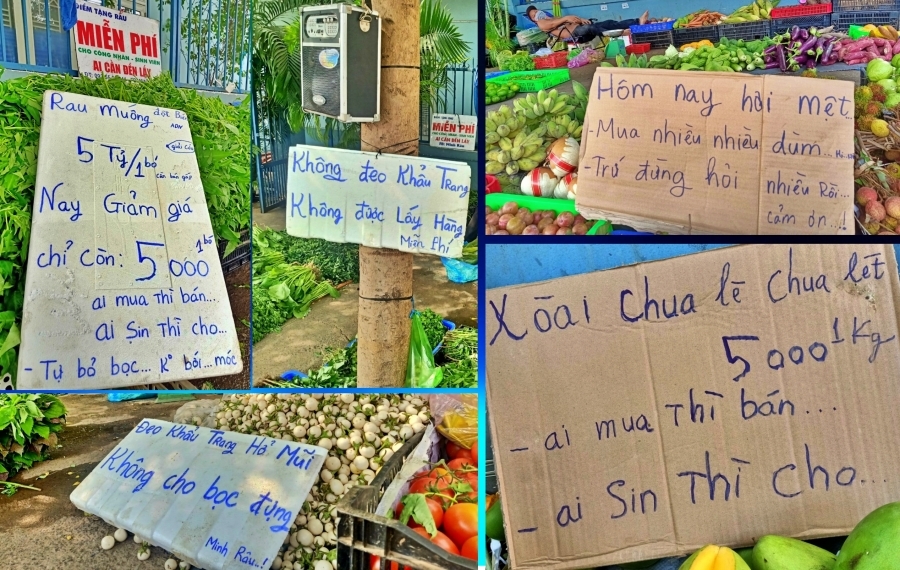 ĐIỂM TẶNG RAU
MIỄN PHÍ
CHO CÔNG NHÂN - SINH VIÊN
AI CẦN ĐẾN LẤY
Rau muống đột Biến
ADN
5 Tỷ/1 bó
(giải Cứu
Cần bán gấp
Nay Giảm giá
chỉ còn: 5000 1 bó
ai mua Thì bán...
ai Sin Thì cho...
- Tự bỏ bọc... K° bới... móc
MIỄN PHÍ
Không đeo Khẩu Trang
Không được Lấy Hàng
Miễn Phí
Đeo Khẩu Trang Hở Mũi
Không cho bọc đựng
Minh Râu..!
Hôm nay hơi mệt
- Mua nhiều nhiều dùm...
- Trứ đừng hỏi nhiều Rồi...
cảm ơn...!
Xōài chua lè chua lét
5000 1Kg
- ai mua Thì bán...
- ai Sin Thì cho...